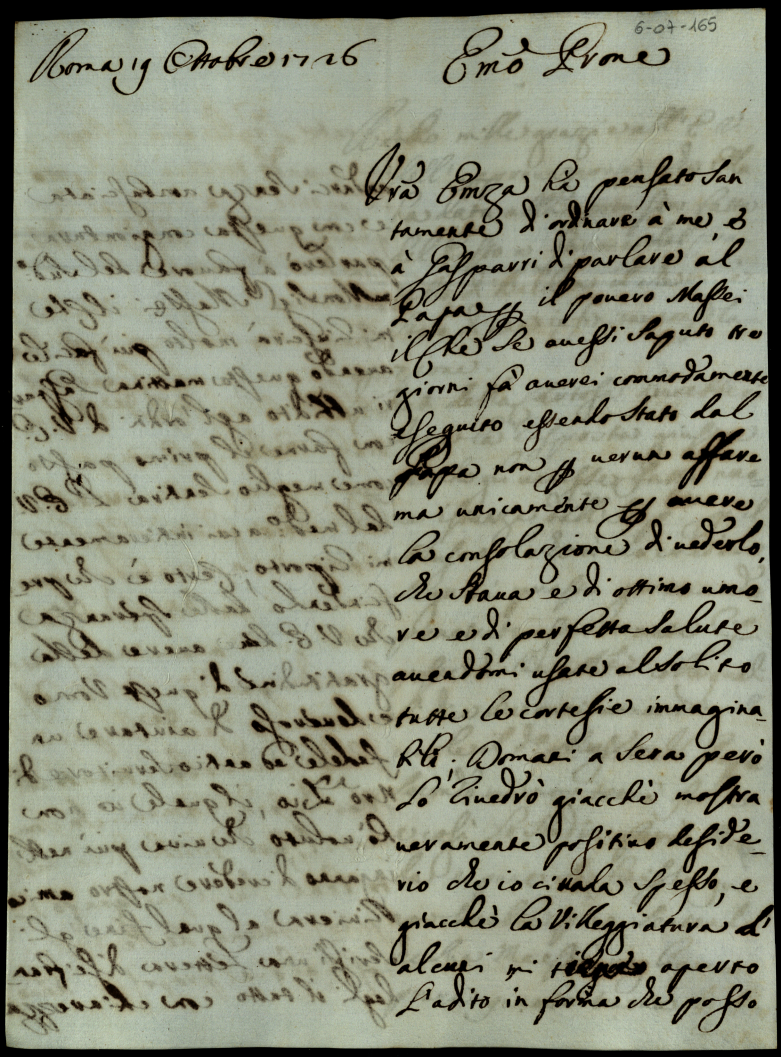 6-07-165
Roma 19 Ottobre 1726
Emo Prone
Vra Emza hà pensato san
tamente d'ordinare à me, e
à Gasparri di parlare al
Papa p il povero Massei
il che se avessi saputo tre
giorni fà averei commodamente
eseguito essendo stato dal
Papa non p verun affare
ma unicamente p avere
la consolazione di vederlo,
che stava e di ottimo umo-
re e di perfetta salute
avendomi usate al solito
tutte le cortesie immagina-
bili; Domani a sera però
lo rivedrò giacchè mostra
veramente positivo deside-
rio che io ci vada spesso, e
giacchè la Villeggiatura d'
alcuni mi aperto
l'adito in forma che posso